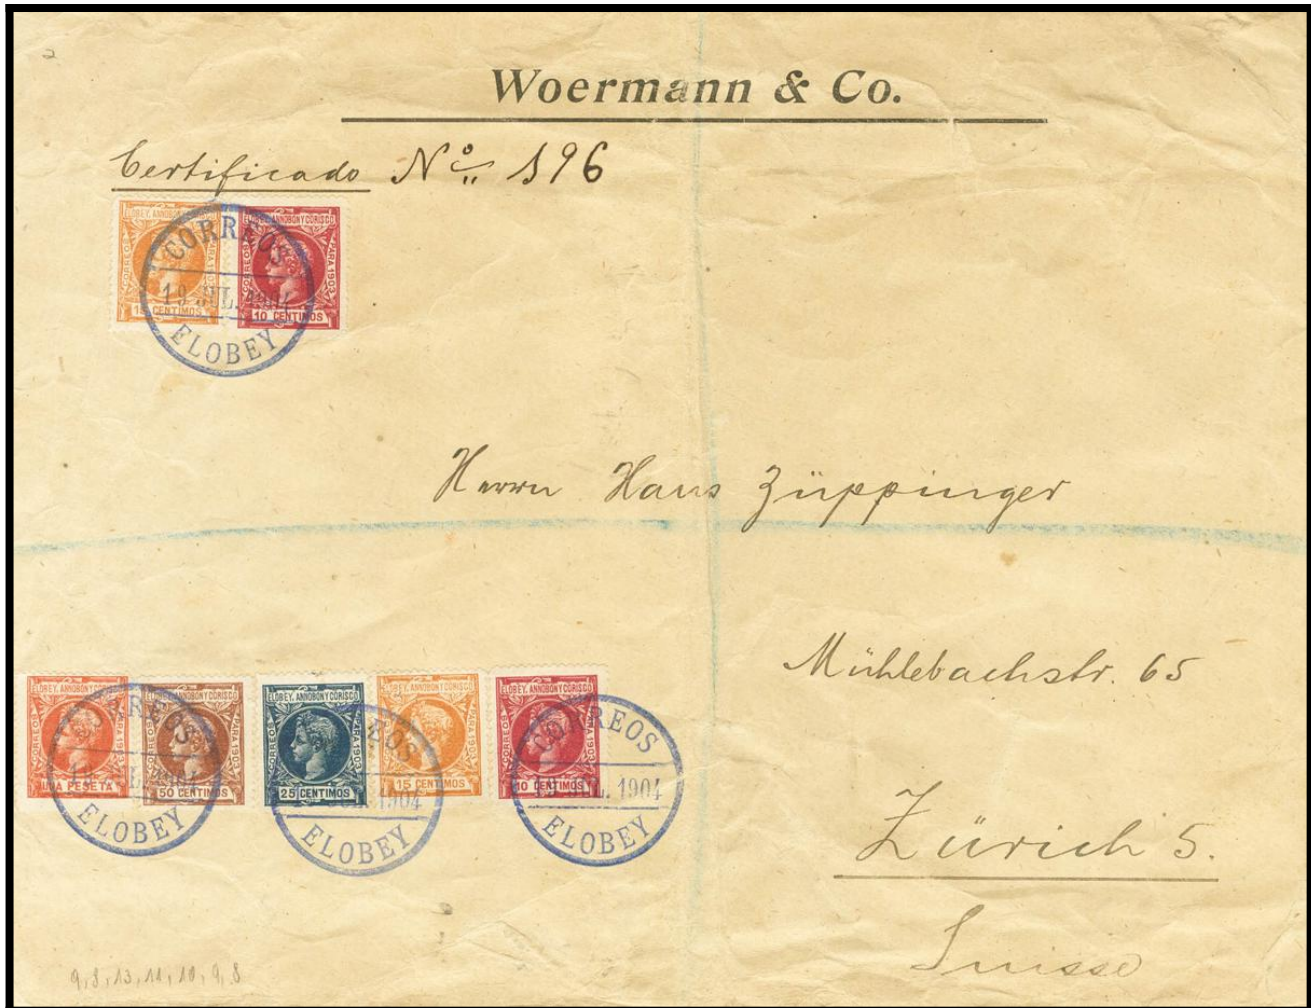 Woermann & Co.
Certificado Nº 196
ELOBEY, ANNOBON Y CORISCO
CORREOS
PARA 1903
15 CENTIMOS
ELOBEY, ANNOBON Y CORISCO
CORREOS
PARA 1903
10 CENTIMOS
CORREOS
19 JUL. 1904
ELOBEY
Herrn Hans Züppinger
Mühlebachstr. 65
Zürich 5.
Suisse
ELOBEY, ANNOBON Y CORISCO
CORREOS
PARA 1903
UNA PESETA
ELOBEY, ANNOBON Y CORISCO
PARA 1903
50 CENTIMOS
CORREOS
1904
ELOBEY
ELOBEY, ANNOBON Y CORISCO
CORREOS
PARA 1903
25 CENTIMOS
ELOBEY, ANNOBON Y CORISCO
PARA 1903
15 CENTIMOS
CORREOS
1904
ELOBEY
ELOBEY, ANNOBON Y CORISCO
CORREOS
PARA 1903
10 CENTIMOS
CORREOS
19 JUL. 1904
ELOBEY
9,8,13,11,10,9,8